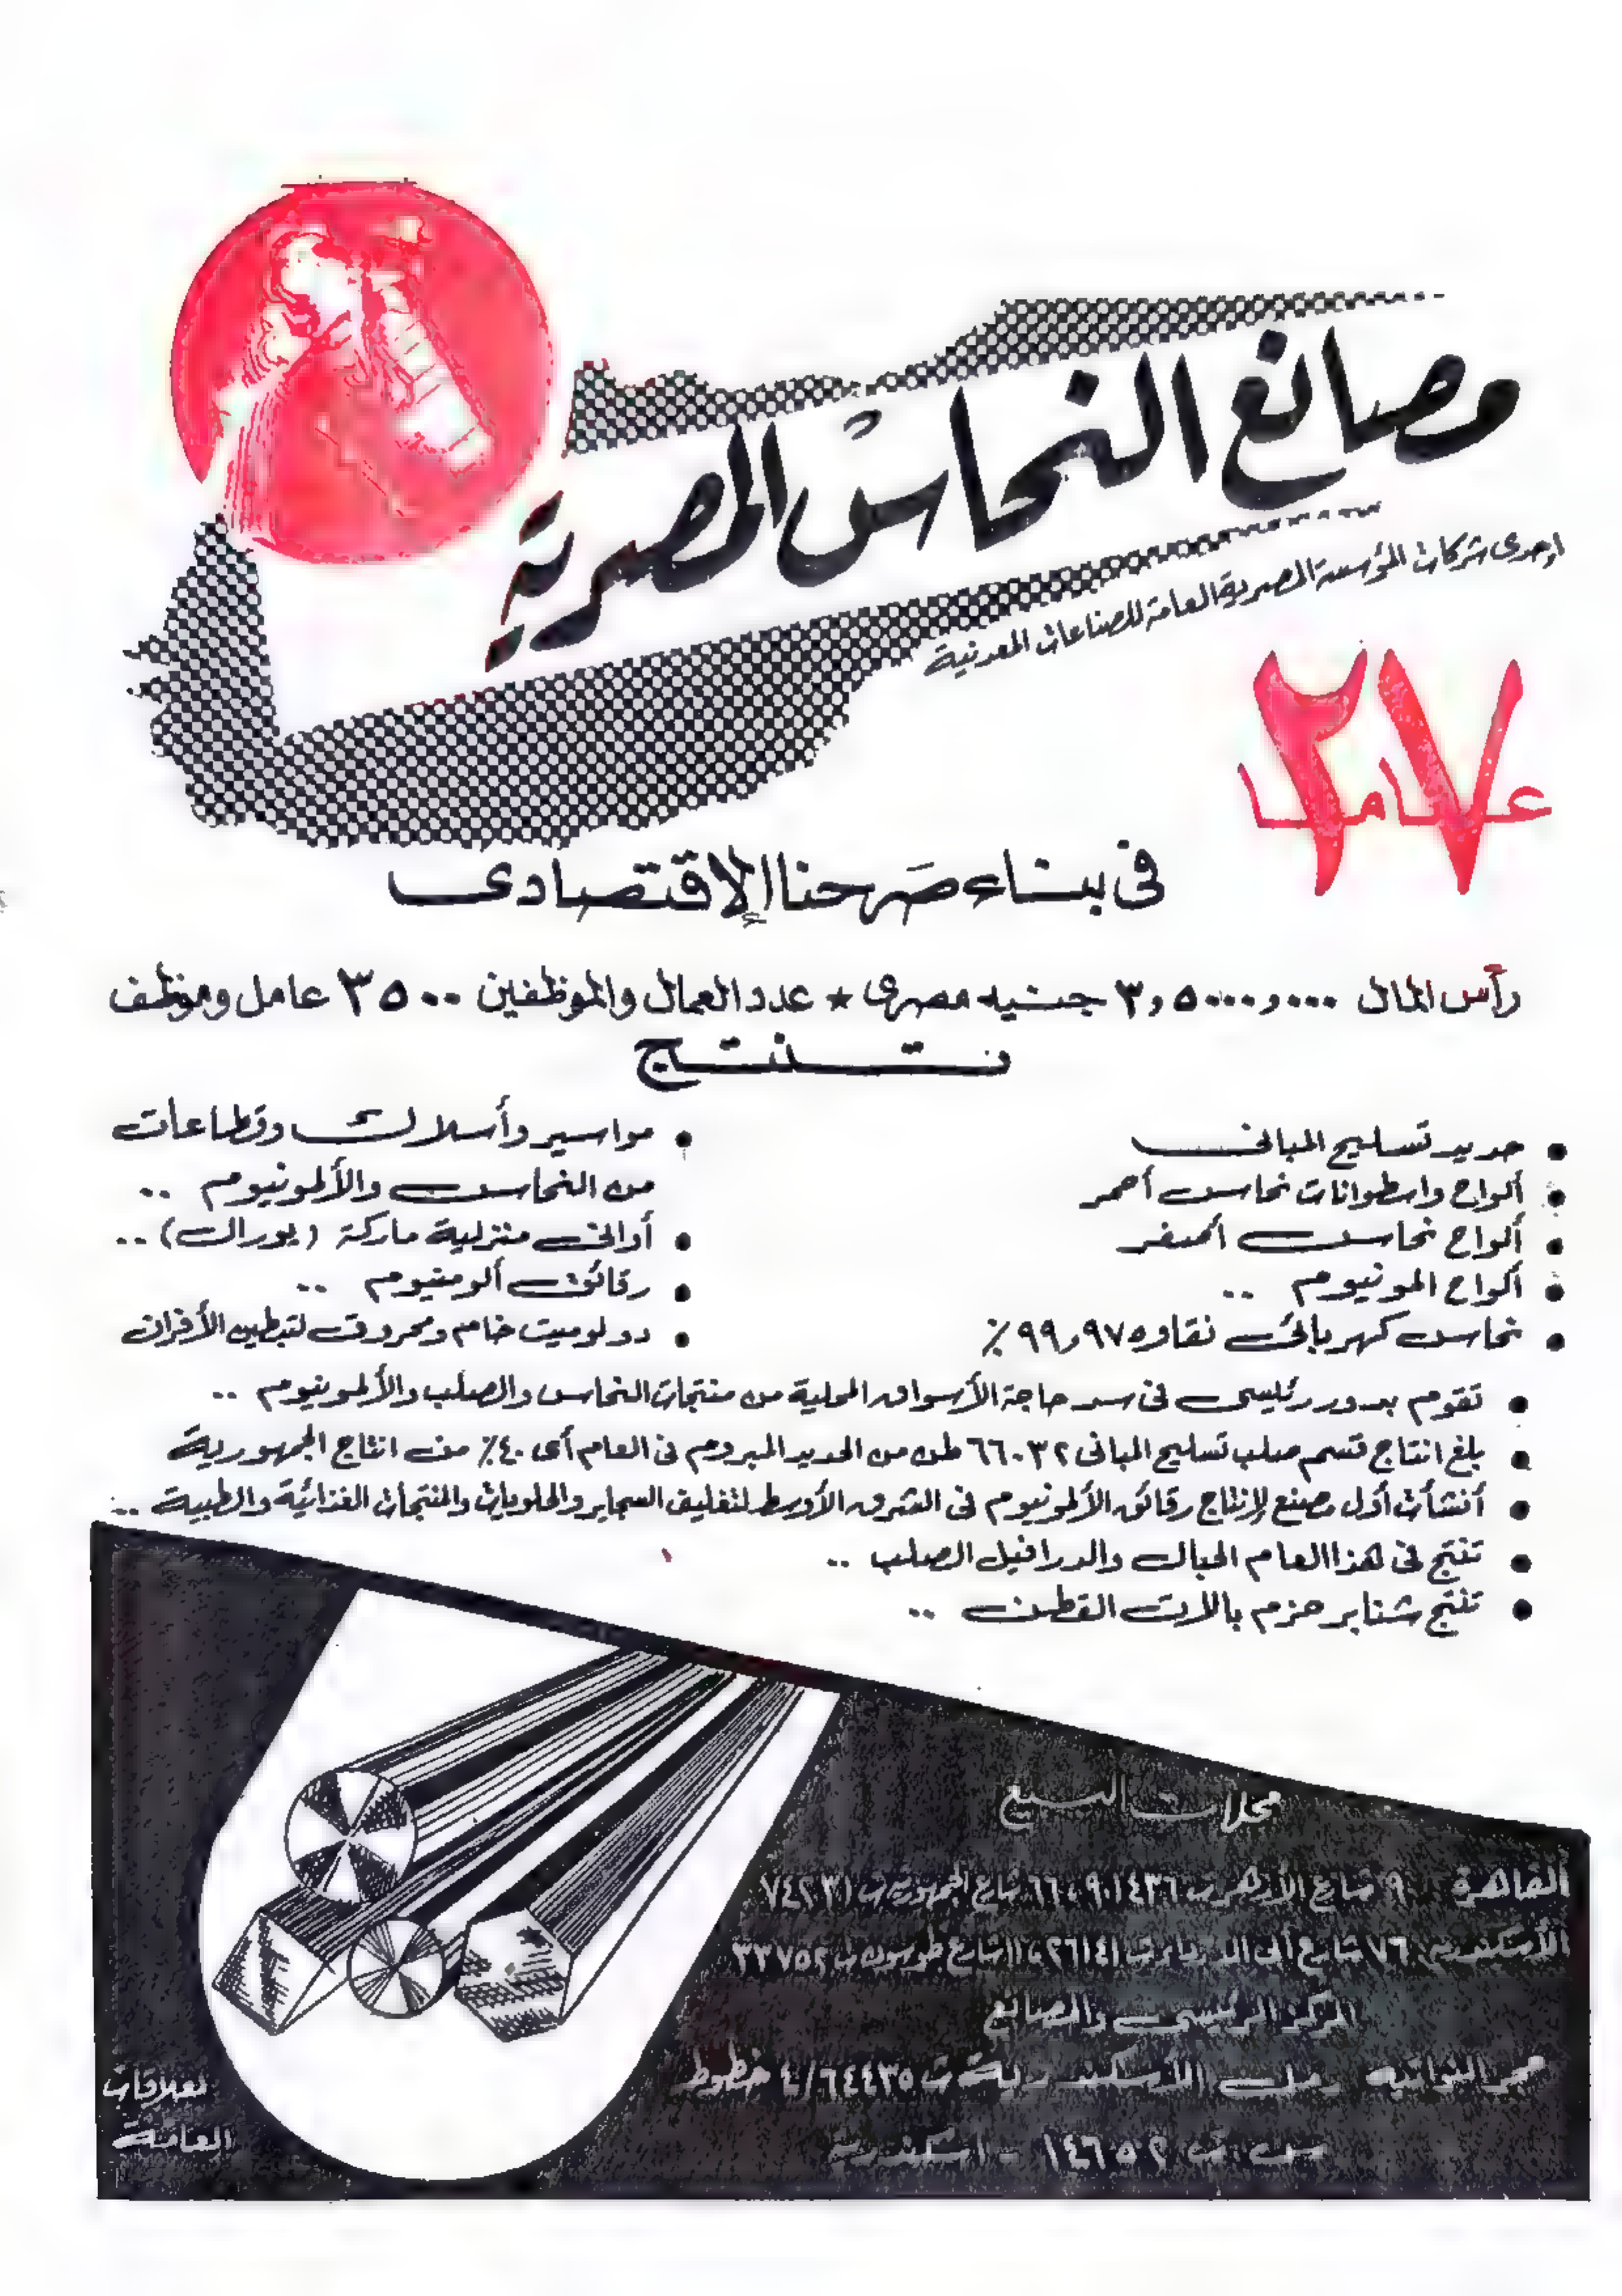 مصانع النحاس المصرية
إحدى شركات المؤسسة المصرية العامة للصناعات المعدنية
٢٧ عاما
فى بناء صرحنا الإقتصادى
رأس المال ٣,٥٠٠,٠٠٠ جنيه مصرى ★ عدد العمال والموظفين ٣٥٠٠ عامل وموظف
تنتج
• حديد تسليح المبانى
• ألواح واسطوانات نحاس أحمر
• ألواح نحاس أصفر
• ألواح المونيوم ..
• نحاس كهربائى نقاوه ٩٩,٩٧٥٪
• مواسير وأسلاك وقطاعات
من النحاس والألمونيوم ..
• أوانى منزلية ماركة (يورال) ..
• رقائق ألومنيوم ..
• دولوميت خام ومحروق لتبطين الأفران
• تقوم بدور رئيسى فى سد حاجة الأسواق المحلية من منتجات النحاس والصلب والألمونيوم ..
• بلغ انتاج قسم صلب تسليح المبانى ٦٦٠٣٢ طن من الحديد المبروم فى العام أى ٤٠٪ من انتاج الجمهورية
• أنشأت أول مصنع لإنتاج رقائق الألمونيوم فى الشرق الأوسط لتغليف السجاير والحلويات والمنتجات الغذائية والطبية ..
• تنتج فى هذا العام الحبال والدرافيل الصلب ..
• تنتج شنابر حزم بالات القطن ..
محلات البيع
القاهرة ٩ شارع الأزهر ت ٩٠١٤٣٦ ، ٦٦ شارع الجمهورية ت
الأسكندرية ٧٦ شارع أبى الدرداء ت ٢٦١٤١ ، ١١ شارع طوسون ت ٣٣٧٥٢
المركز الرئيسى والمصانع
حجر النواتيه رمل الأسكندرية ت ٦٤٤٣٥/٤ خطوط
س. ت ١٤٦٥٢ - اسكندرية
العلاقات
العامة